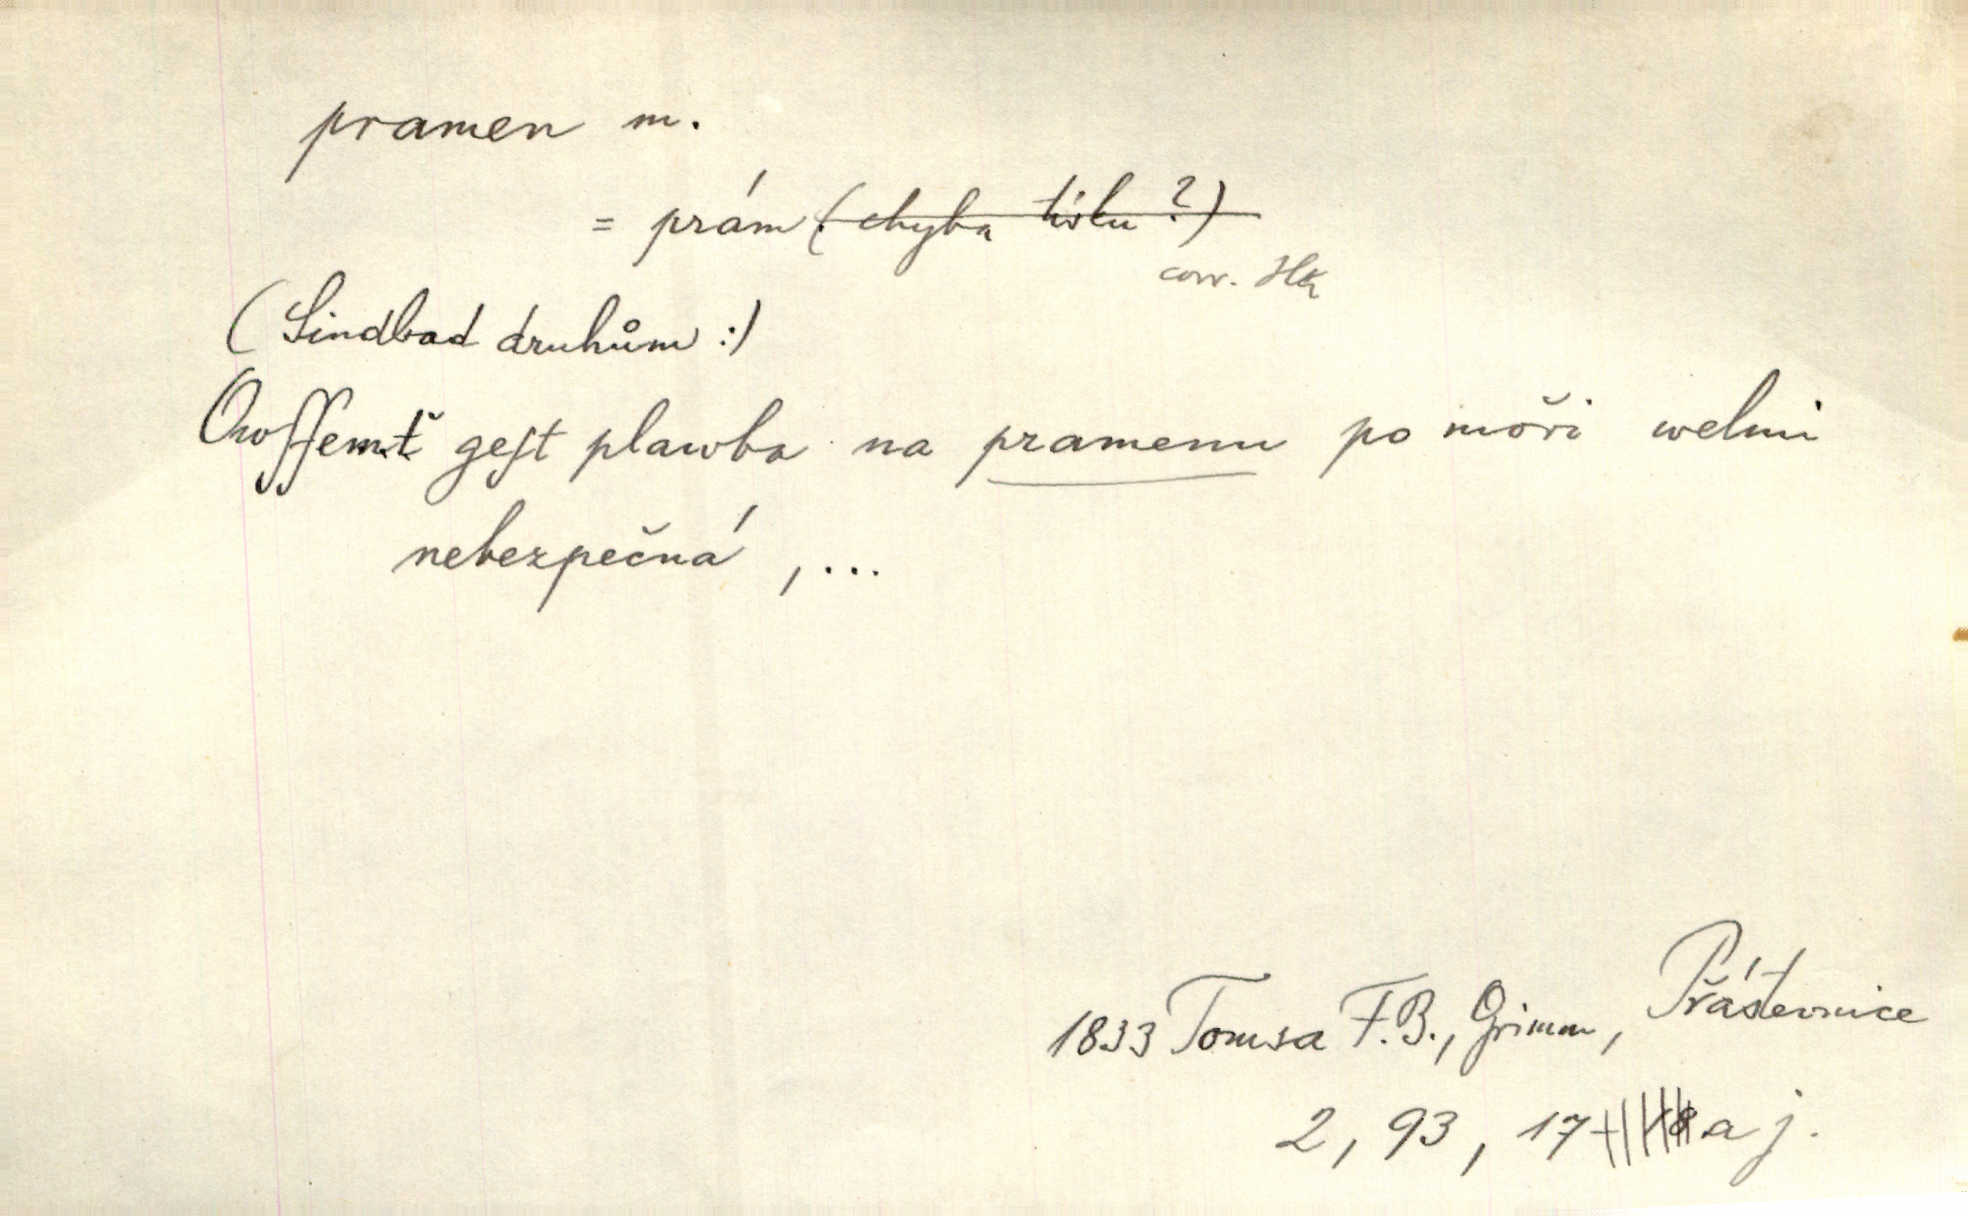 pramen m.
= prám (chyba tisku?)
corr. Hk
(Sindbad druhům:)
Owſſemť geſt plawba na pramenu po moři welmi
nebezpečná, ...
1833 Tomsa F.B., Grimm, Přástevnice
2, 93, 17 a j.